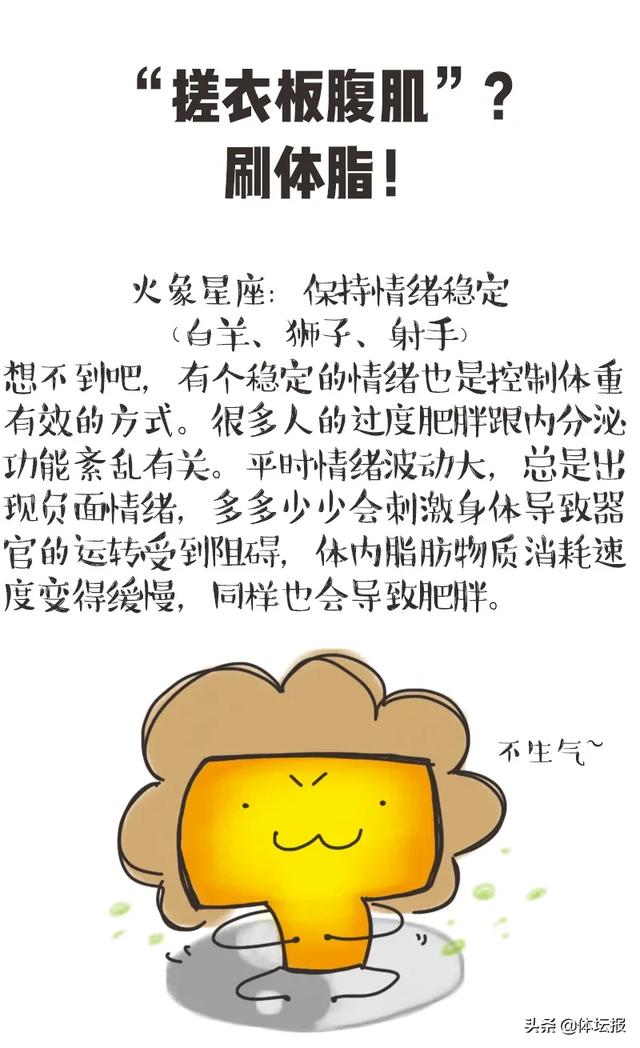 “搓衣板腹肌”？
刷体脂！
火象星座：保持情绪稳定
（白羊、狮子、射手）
想不到吧，有个稳定的情绪也是控制体重
有效的方式。很多人的过度肥胖跟内分泌
功能紊乱有关。平时情绪波动大，总是出
现负面情绪，多多少少会刺激身体导致器
官的运转受到阻碍，体内脂肪物质消耗速
度变得缓慢，同样也会导致肥胖。
不生气~
头条 @体坛报